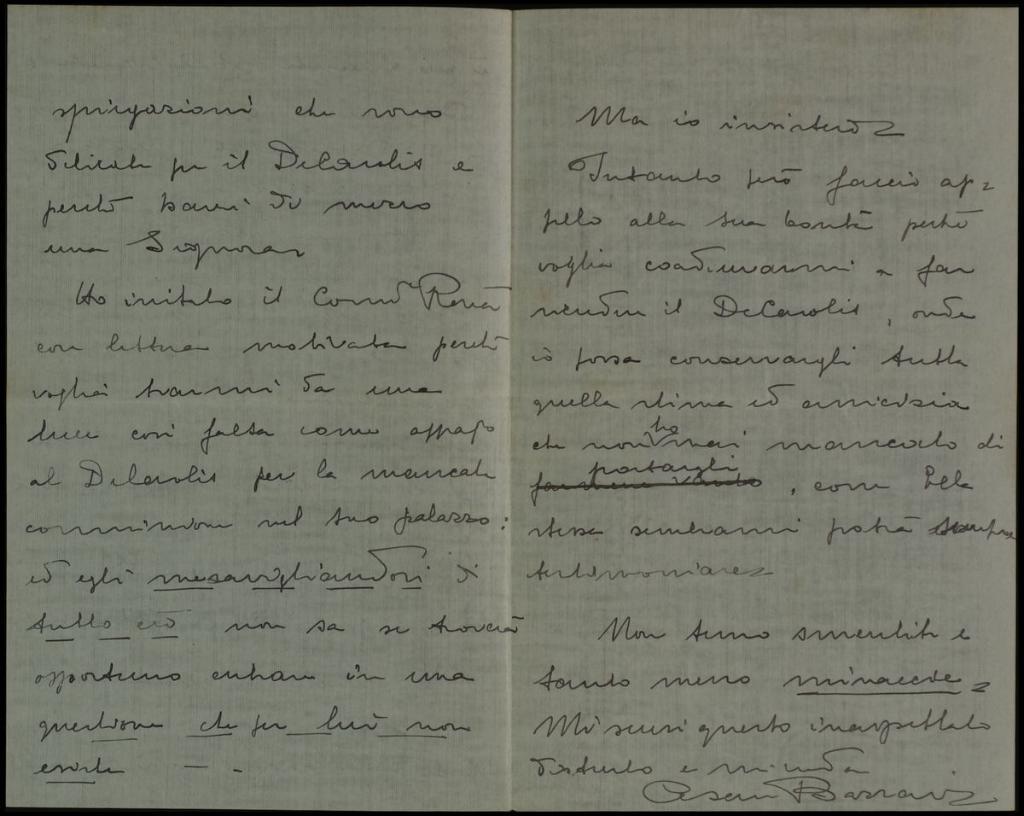 spiegazioni che sono
delicate per il DeCarolis e
perché havvi di mezzo
una Signora
Ho invitato il Comm
con lettera motivata perché
voglia trarmi da una
luce così falsa come appajo
al DeCarolis per la mancata
commissione nel suo palazzo:
ed egli meravigliandosi di
tutto ciò non sa se troverà
opportuno entrare in una
questione che per lui non
esiste — -
Ma io insisterò
Intanto però faccio ap=
pello alla sua bontà perché
voglia coadiuvarmi a far
il DeCarolis, onde
io possa conservargli tutta
quella stima ed amicizia
che non ho mai mancato di
portargli, come Ella
stessa sembrami potrà sempre
testimoniare
Non temo smentite e
tanto meno minaccie =
Mi scusi questo inaspettato
disturbo e mi creda
Cesare